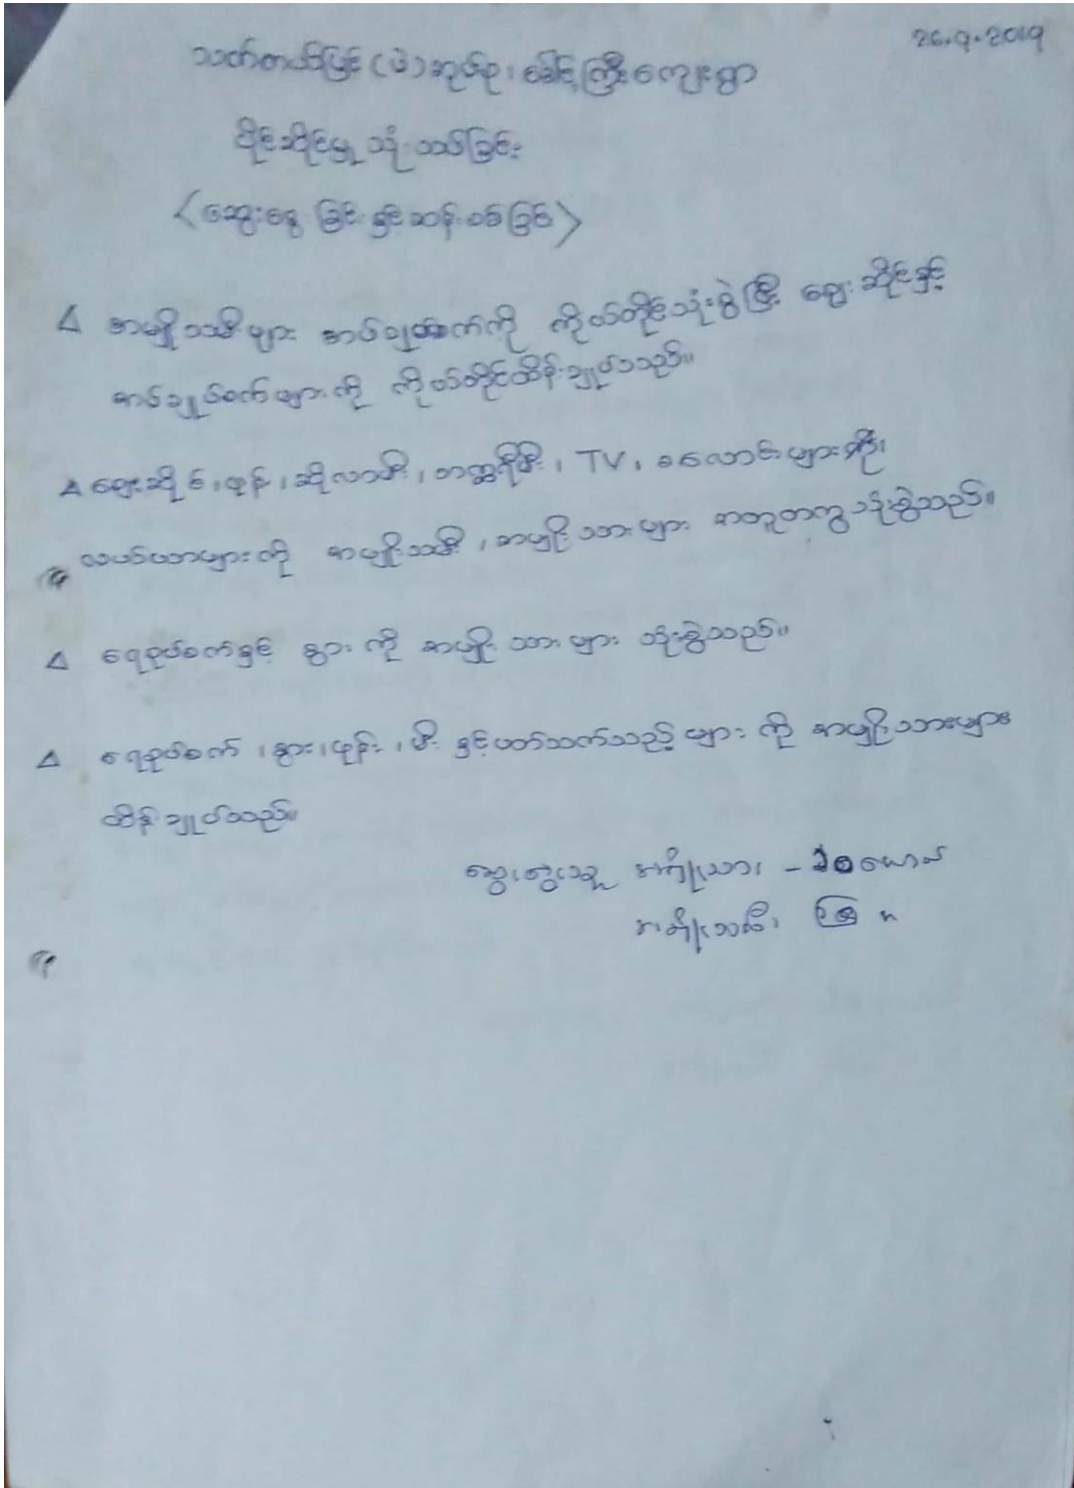 26.9.2019
သတ်တယ်ပြင် (ဖဲ) အုပ်စု၊ ခေါင့်ကြီးကျေးရွာ
ပိုင်ဆိုင်မှု သုံးသပ်ခြင်း
<ဆွေးနွေးခြင်းနှင့်ဆန်းစစ်ခြင်း>
△ အမျိုးသမီးများ အပ်ချုပ်စက်ကို ကိုယ်တိုင်သုံးစွဲပြီး ဈေးဆိုင်နှင့်
အပ်ချုပ်စက်များကို ကိုယ်တိုင်ထိန်းချုပ်သည်။
△ ဈေးဆိုင်၊ ဖုန်း၊ ဆိုလာမီး၊ ဘက္ထရီမီး၊ TV၊ စလောင်းများကို၊
လယ်ယာများကို အမျိုးသမီး၊ အမျိုးသားများ အတူတကွသုံးစွဲသည်။
△ ရေစုပ်စက်နှင့် နွားကို အမျိုးသားများ သုံးစွဲသည်။
△ ရေစုပ်စက်၊ နွား၊ ဖုန်း၊ မီးနှင့်ပတ်သက်သည့်များကို အမျိုးသားများ
ထိန်းချုပ်သည်။
ဆွေးနွေးသူ အမျိုးသား - ယောက်
အမျိုးသမီး "